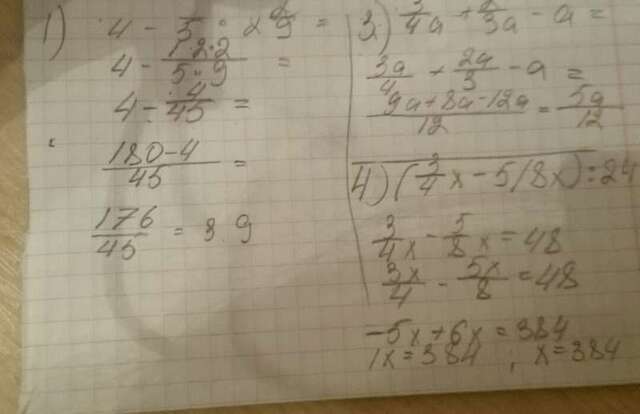 1) 4 - 1/5 · 2 2/9 =
4 - 1·2·2/5·9 =
4 - 4/45 =
180-4/45 =
176/45 = 3.9
3) 3/4a + 2/3a - a =
3a/4 + 2a/3 - a =
9a+8a-12a/12 = 5a/12
4) (3/4x - 5/8x) : 24
3/4x - 5/8x = 48
3x/4 - 5x/8 = 48
-5x+6x=384
1x=384 , x=384